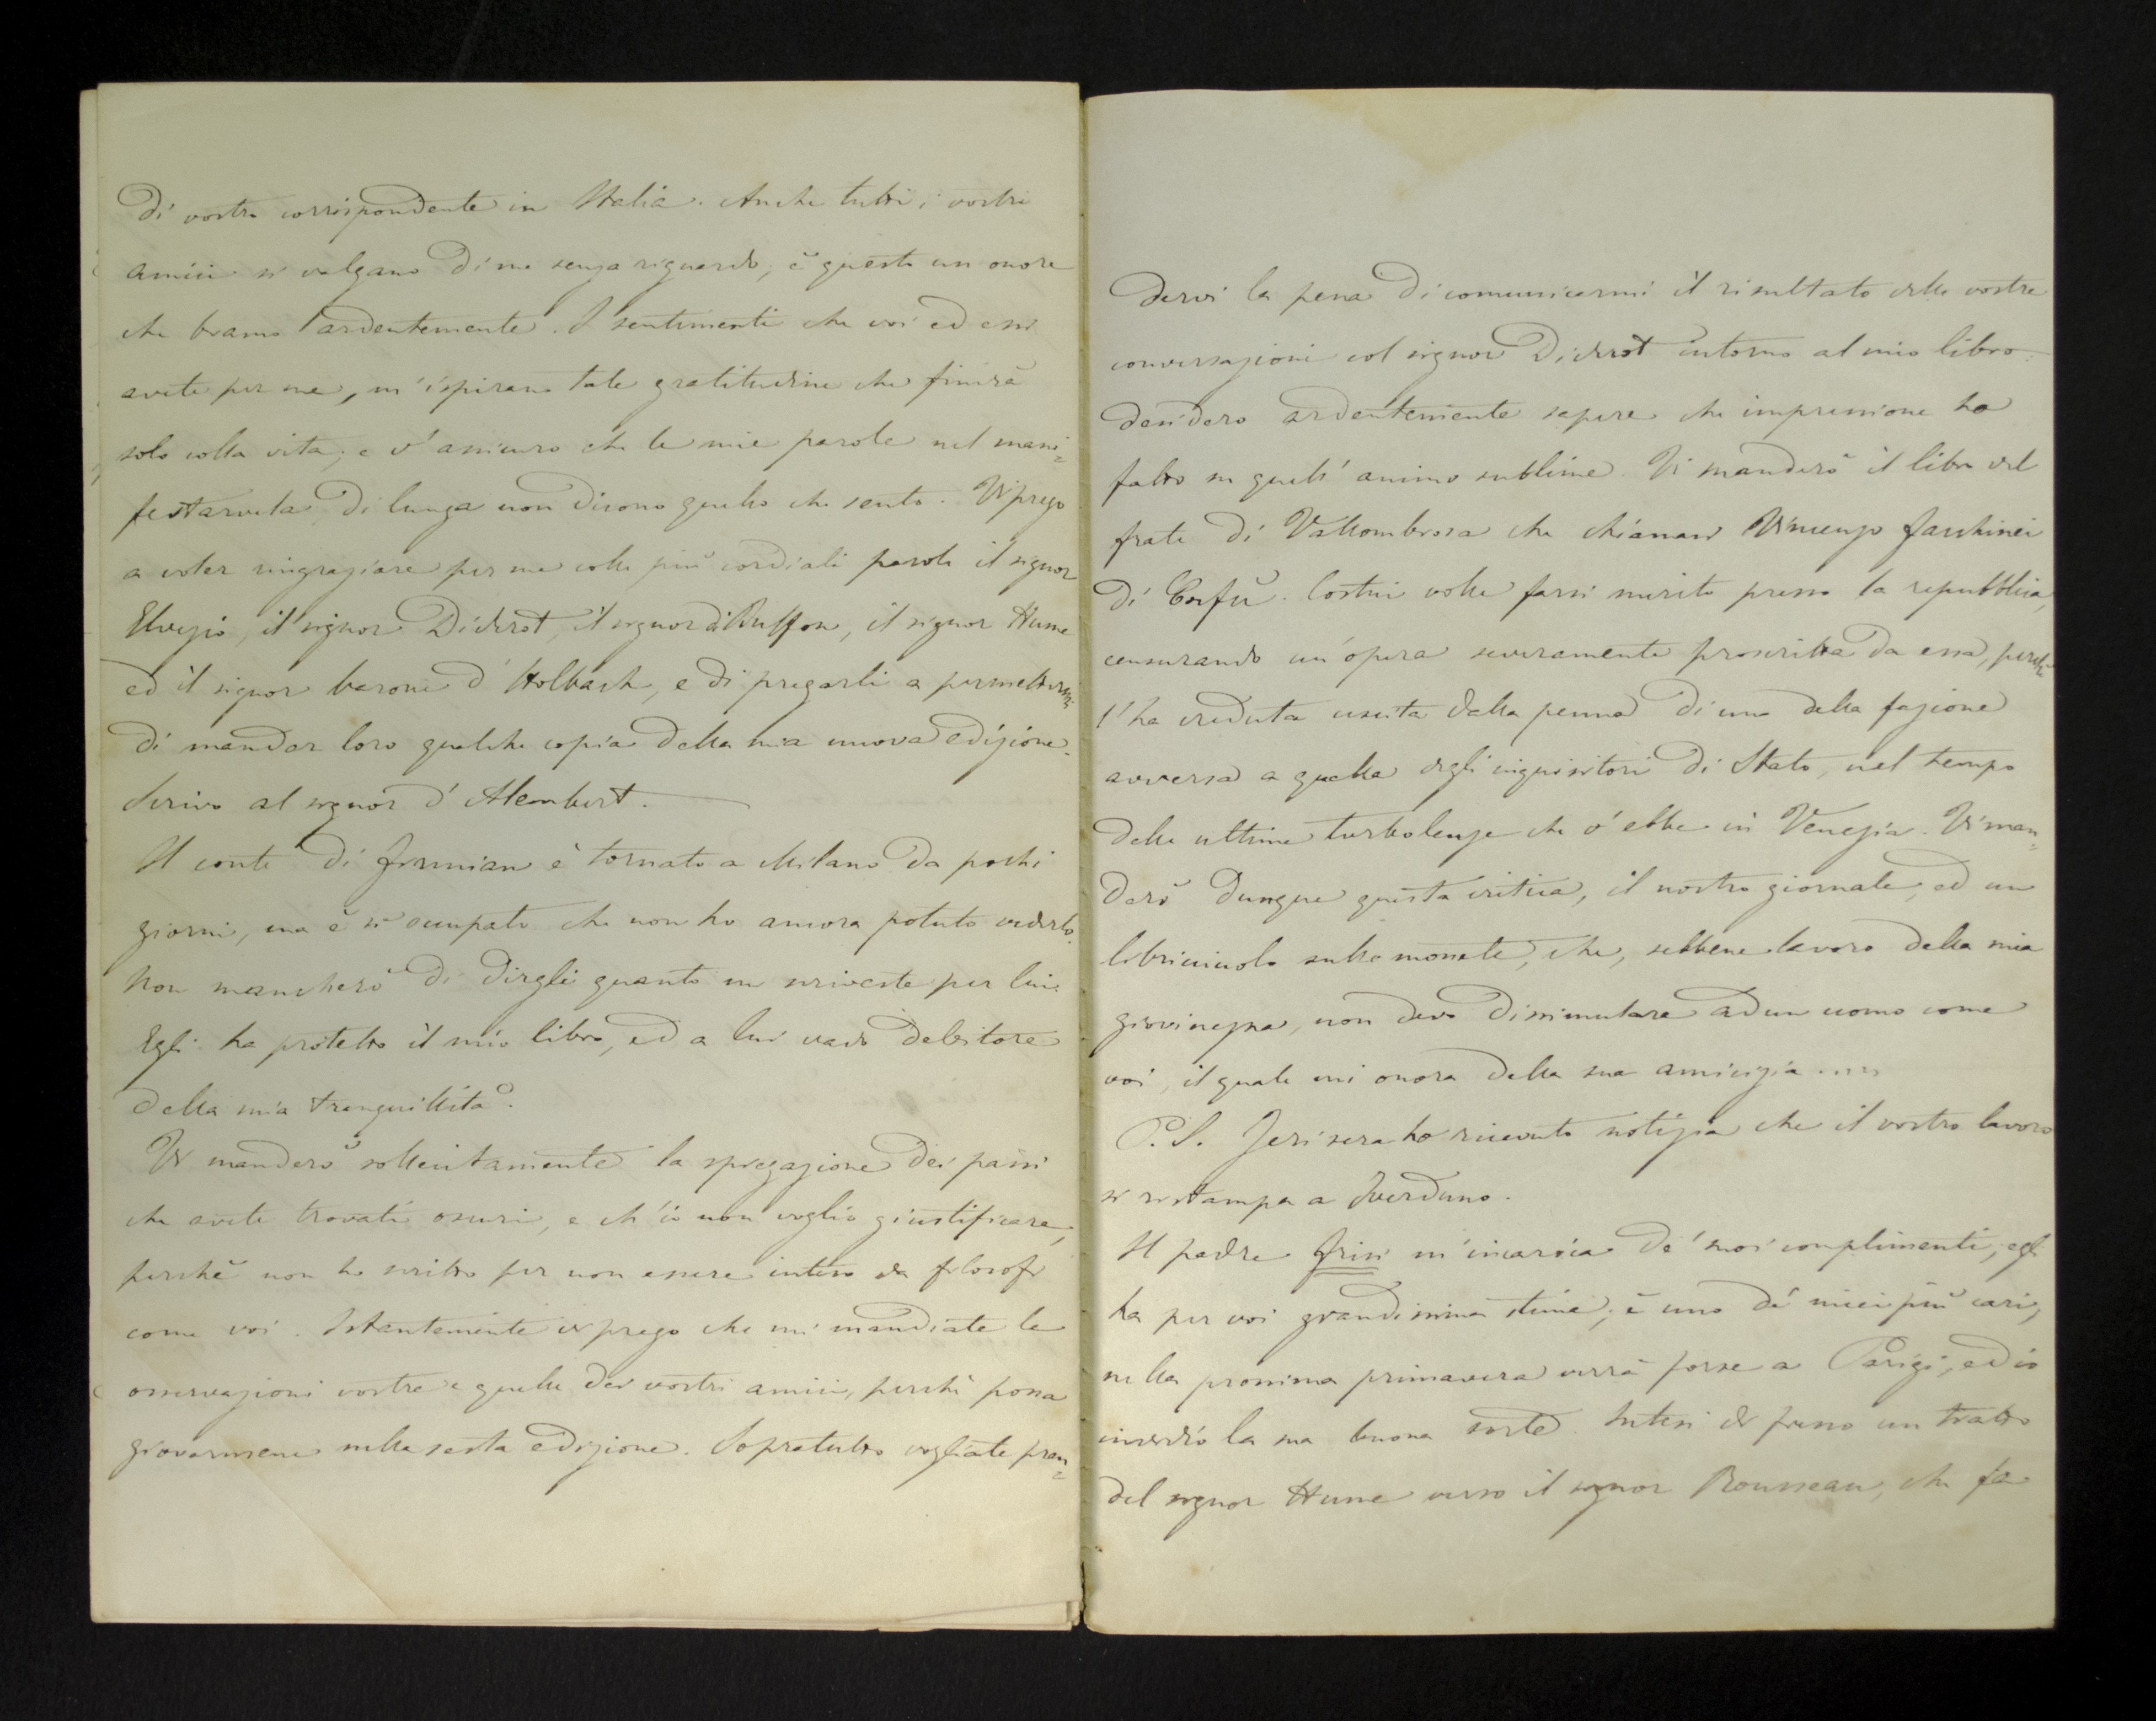 di vostro corrispondente in Italia. Anche tutti i vostri
amici si valgano di me senza riguardo; è questo un onore
che bramo ardentemente. I sentimenti che voi ed essi
avete per me, m'ispirano tale gratitudine che finirà
solo colla vita; e v'assicuro che le mie parole nel mani=
festarvela, di lunga non dicono quello che sento. Vi prego
a voler ringraziare per me colle più cordiali parole il signor
Elvezio, il signor Diderot, il signor di Buffon, il signor Hume
ed il signor barone d'Holbach, e di pregarli a permettermi
di mandar loro qualche copia della mia nuova edizione.
Scrivo al signor d'Alembert.
Il conte di Firmian è tornato a Milano da pochi
giorni, ma è sì occupato che non ho ancora potuto vederlo.
Non mancherò di dirgli quanto mi scriveste per lui.
Egli ha protetto il mio libro, ed a lui vado debitore
della mia tranquillità.
Vi manderò sollecitamente la spiegazione dei passi
che avete trovati oscuri, e ch'io non voglio giustificare,
perchè non ho scritto per non essere inteso da filosofi
come voi. Istantemente vi prego che mi mandiate le
osservazioni vostre e quelle dei vostri amici, perchè possa
giovarmene nella sesta edizione. Sopratutto vogliate pren=
dervi la pena di comunicarmi il risultato delle vostre
conversazioni col signor Diderot intorno al mio libro:
desidero ardentemente sapere che impressione ho
fatto su quell'animo sublime. Vi manderò il libro del
frate di Vallombrosa che chiamasi Vincenzo Facchinei
di Corfù. Costui volle farsi merito presso la repubblica,
censurando un'opera severamente proscritta da essa, perchè
l'ha creduta uscita dalla penna di uno della fazione
avversa a quella degli inquisitori di Stato, nel tempo
delle ultime turbolenze che v'ebbe in Venezia. Vi man=
derò dunque questa critica, il nostro giornale, ed un
libricciuolo sulle monete, che, sebbene lavoro della mia
giovinezza, non devo dissimulare ad un uomo come
voi, il quale mi onora della sua amicizia.....
P.S. Jeri sera ho ricevuto notizia che il vostro lavoro
si ristampa a Iverduno.
Il padre Frisi m'incarica de' suoi complimenti; egli
ha per voi grandissima stima; è uno de' miei più cari;
nella prossima primavera verrà forse a Parigi, ed io
invidio la sua buona sorte. Intesi di fresco un tratto
del signor Hume verso il signor Rousseau, che fa